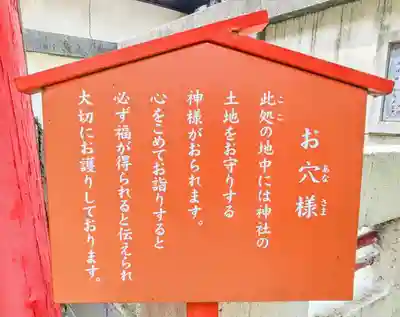 お穴様
あな さま
此処の地中には神社の
ここ
土地をお守りする
神様がおられます。
心をこめてお詣りすると
必ず福が得られると伝えられ
大切にお護りしております。